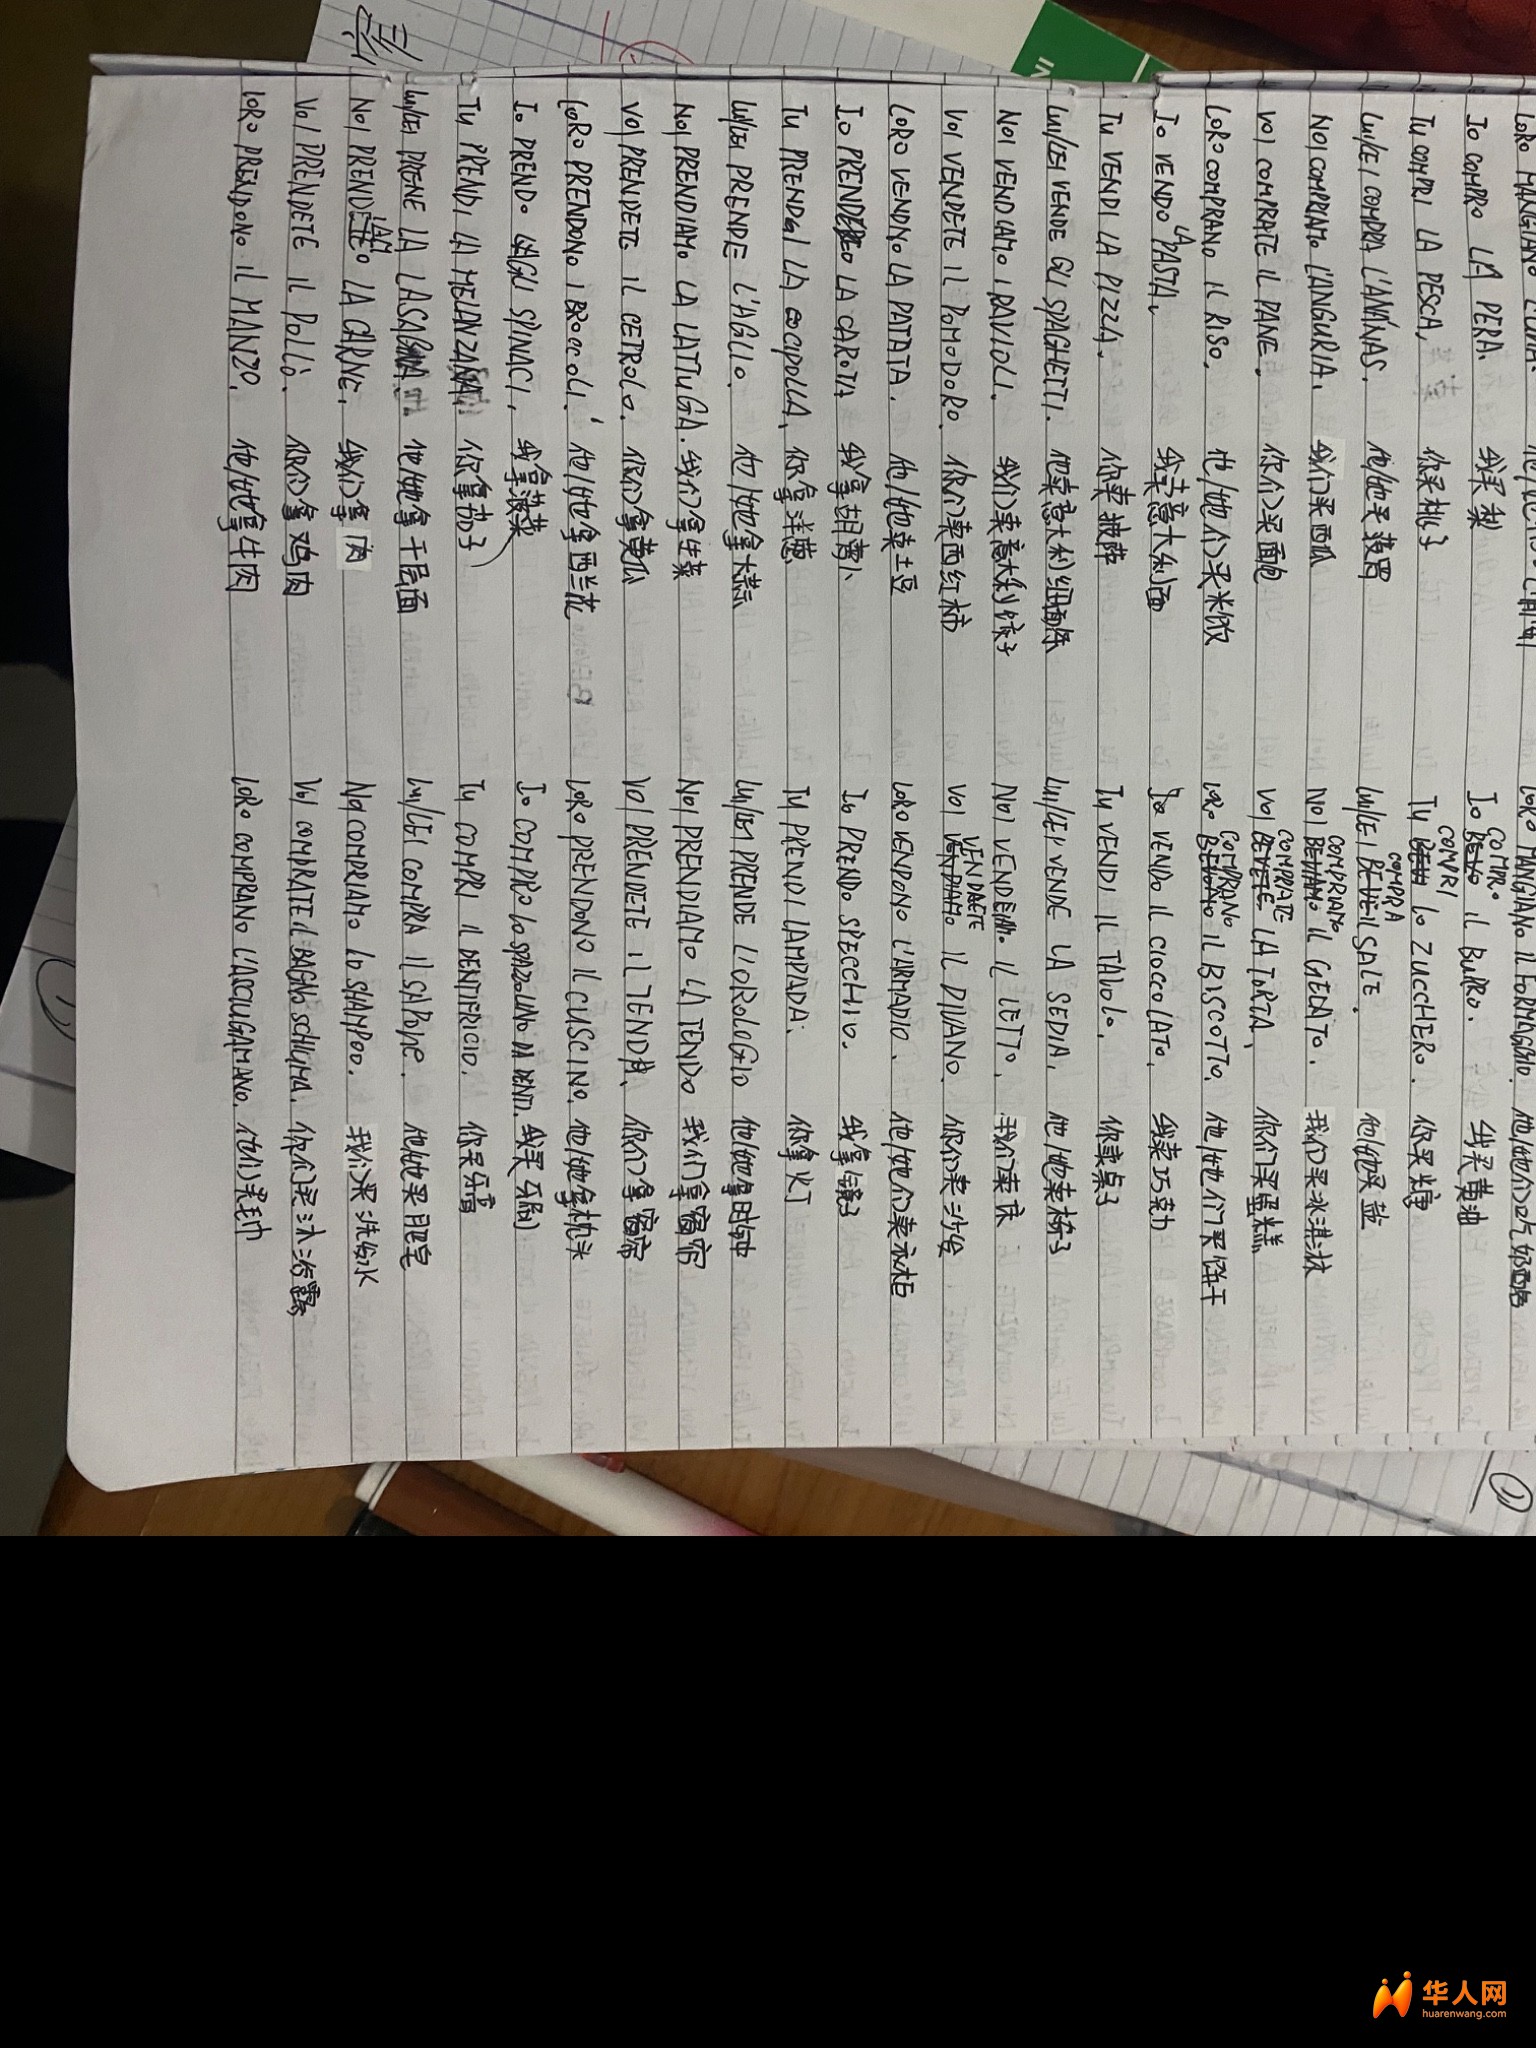 LORO MANGIANO
LORO MANGIANO IL FORMAGGIO. 他/她们吃奶酪
IO COMPRO LA PERA. 我买梨
IO BEVO COMPRO IL BURRO. 我买黄油
TU COMPRI LA PESCA, 你买桃子
TU COMPRI LO ZUCCHERO. 你买糖
LUI/LEI COMPRA L'ANANAS. 他/她买菠萝
LUI/LEI BEVE COMPRA IL SALE. 他/她买盐
NOI COMPRIAMO L'ANGURIA. 我们买西瓜
NOI BEVIAMO COMPRIAMO IL GELATO. 我们买冰淇淋
VOI COMPRATE IL PANE. 你们买面包
VOI BEVETE COMPRATE LA TORTA, 你们买蛋糕
LORO COMPRANO IL RISO. 他/她们买米饭
LORO BEVONO COMPRANO IL BISCOTTO. 他/她们买饼干
IO VENDO LA PASTA, 我卖意大利面
IO VENDO IL CIOCCOLATO. 我卖巧克力
TU VENDI LA PIZZA. 你卖披萨
TU VENDI IL TAVOLO. 你卖桌子
LUI/LEI VENDE GLI SPAGHETTI. 他卖意大利细面条
LUI/LEI VENDE LA SEDIA. 他/她卖椅子
NOI VENDIAMO I RAVIOLI. 我们卖意大利饺子
NOI IL LETTO. 我们卖床
VOI VENDETE IL POMODORO. 你们卖西红柿
VOI VENDIAMO IL DIVANO. 你们卖沙发
LORO VENDNO LA PATATA. 他/她卖土豆
LORO VENDONO L'ARMADIO. 他/她们卖衣柜
IO LA CAROTA 我拿胡萝卜
IO PRENDO SPECCHIO. 我拿镜子
TU LA CIPOLLA, 你拿洋葱
TU PRENDI LAMPADA. 你拿灯
LUI/LEI PRENDE L'AGLIO. 他/她拿大蒜
LUI/LEI PRENDE L'OROLOGIO 他/她拿时钟
NOI PRENDIAMO LA LATTUGA. 我们拿生菜
NOI PRENDIAMO LA TENDO 我们拿窗帘
VOI PRENDETE IL CETROLO. 你们拿黄瓜
VOI PRENDETE IL TENDA. 你们拿窗帘
LORO PRENDONO I BROCCOLI. 他/她拿西兰花
LORO PRENDONO IL CUSCINO. 他/她拿枕头
IO PRENDO GLI SPINACI. 我拿菠菜
IO COMPRO LO 我买牙刷
TU PRENDI LA MELANZANA. 你拿茄子
TU COMPRI IL DENTIFRICIO. 你买牙膏
LUI/LEI PRENE LA 他/她拿千层面
LUI/LEI COMPRA IL SAPONE. 他/她买肥皂
NOI LA CARNE. 我们拿肉
NOI COMPRIAMO LO SHAMPOO. 我们买洗发水
VOI PRENDETE IL POLLO. 你们拿鸡肉
VOI COMPRATE IL BAGNO SCHIUMA. 你们买沐浴露
LORO PRENDONO IL MANZO. 他/她拿牛肉
LORO COMPRANO L'ASCIUGAMANO. 他们买毛巾
华人网
huarenwang.com